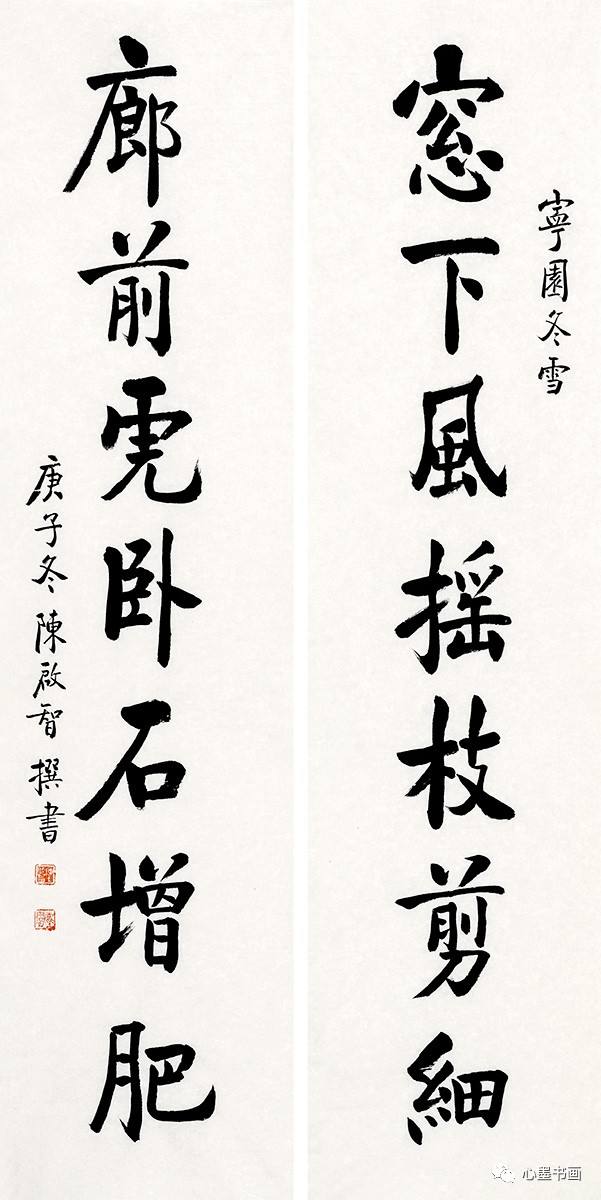 寧園冬雪
窓下風摇枝剪細
廊前虎卧石增肥
庚子冬 陳啟智 撰書
心墨书画